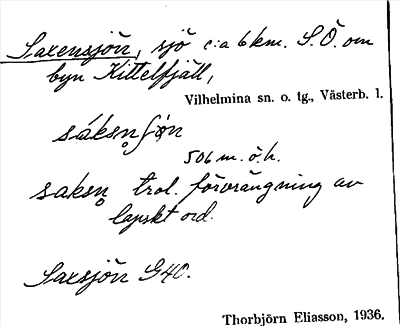 Saxensjön, sjö c:a 6 km. S.Ö. om
byn Kittelfjäll,
Vilhelmina sn. o. tg., Västerb. l.
sáksn̥ ʃøn
506 m. ö. h.
saksn̥ trol. förvrängning av
lapskt ord.
Saxsjön G40.
Thorbjörn Eliasson, 1936.